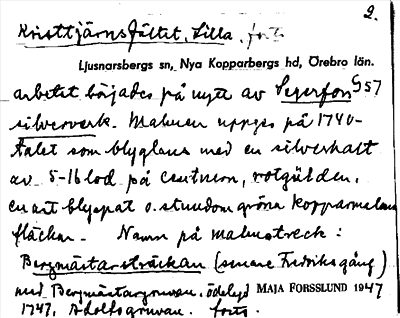 2.
Kristtjärnsfältet, Lilla, forts.
Ljusnarsbergs sn, Nya Kopparbergs hd, Örebro län.
arbetet började på nytt av Segerfors G57
silververk. Malmen uppges på 1740-
talet som blyglans med en silverhalt
av 5-16 lod på centnern, rotgülden,
en art blyspat o. stundom gröna kopparmalms
fläckar. Namn på malmstreck:
Bergmästarsträckan (senare Fredriksgång)
med Bergmästargruvan, ödelagd MAJA FORSSLUND 1947
1747, Adolfsgruvan. forts.